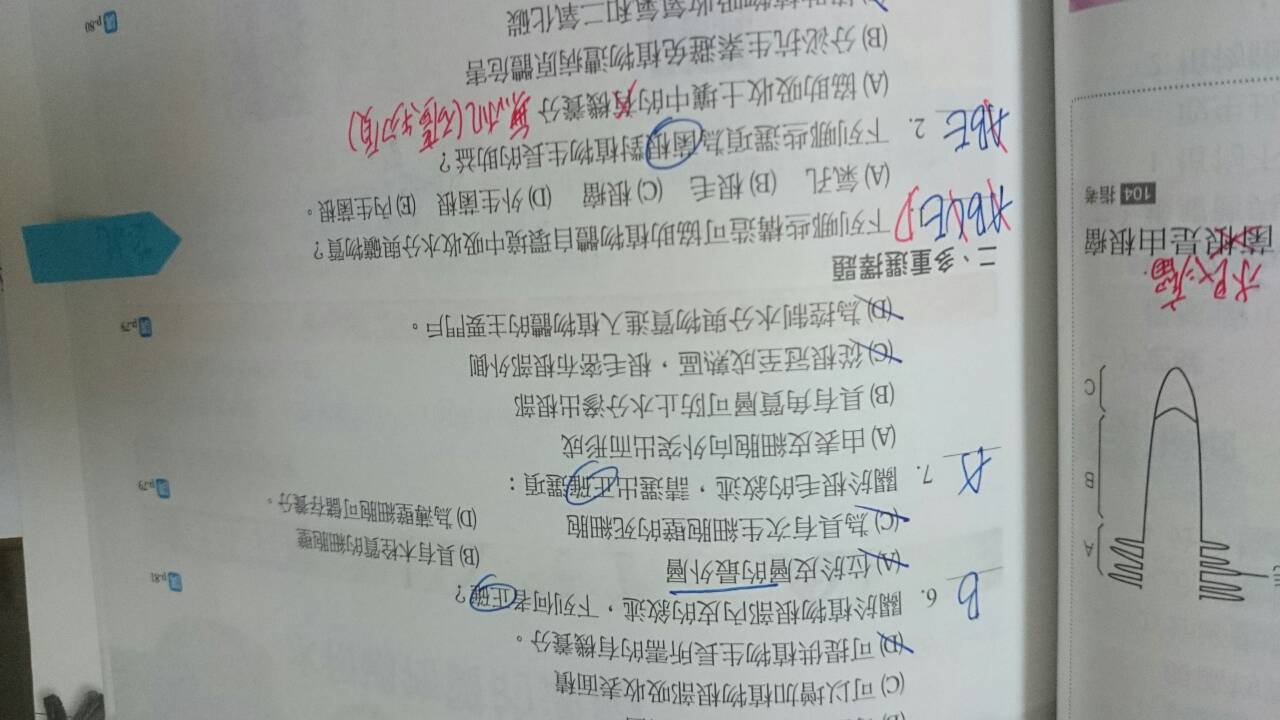 (C) 可以增加植物根部吸收表面積
(D) 可提供植物生長所需的有機養分。
B 6. 關於植物根部內皮的敘述，下列何者正確？ p.81
(A) 位於皮層的最外層 (B) 具有木栓質的細胞壁
(C) 為具有次生細胞壁的死細胞 (D) 為薄壁細胞可儲存養分。 p.79
A 7. 關於根毛的敘述，請選出正確選項：
(A) 由表皮細胞向外突出而形成
(B) 具有角質層可防止水分滲出根部
(C) 從根冠至成熟區，根毛密布根部外側
(D) 為控制水分與物質進入植物體的主要門戶。 p.79
二、多重選擇題
下列哪些構造可協助植物體自環境中吸收水分與礦物質？
(A) 氣孔 (B) 根毛 (C) 根瘤 (D) 外生菌根 (E) 內生菌根。
ABE 2. 下列哪些選項為菌根對植物生長的助益？
(A) 協助吸收土壤中的有機養分 無機(礦物質)
(B) 分泌抗生素避免植物遭病原體危害
氧氣和二氧化碳 p.80
A
B
C
根瘤
菌根是由根瘤
104 指考